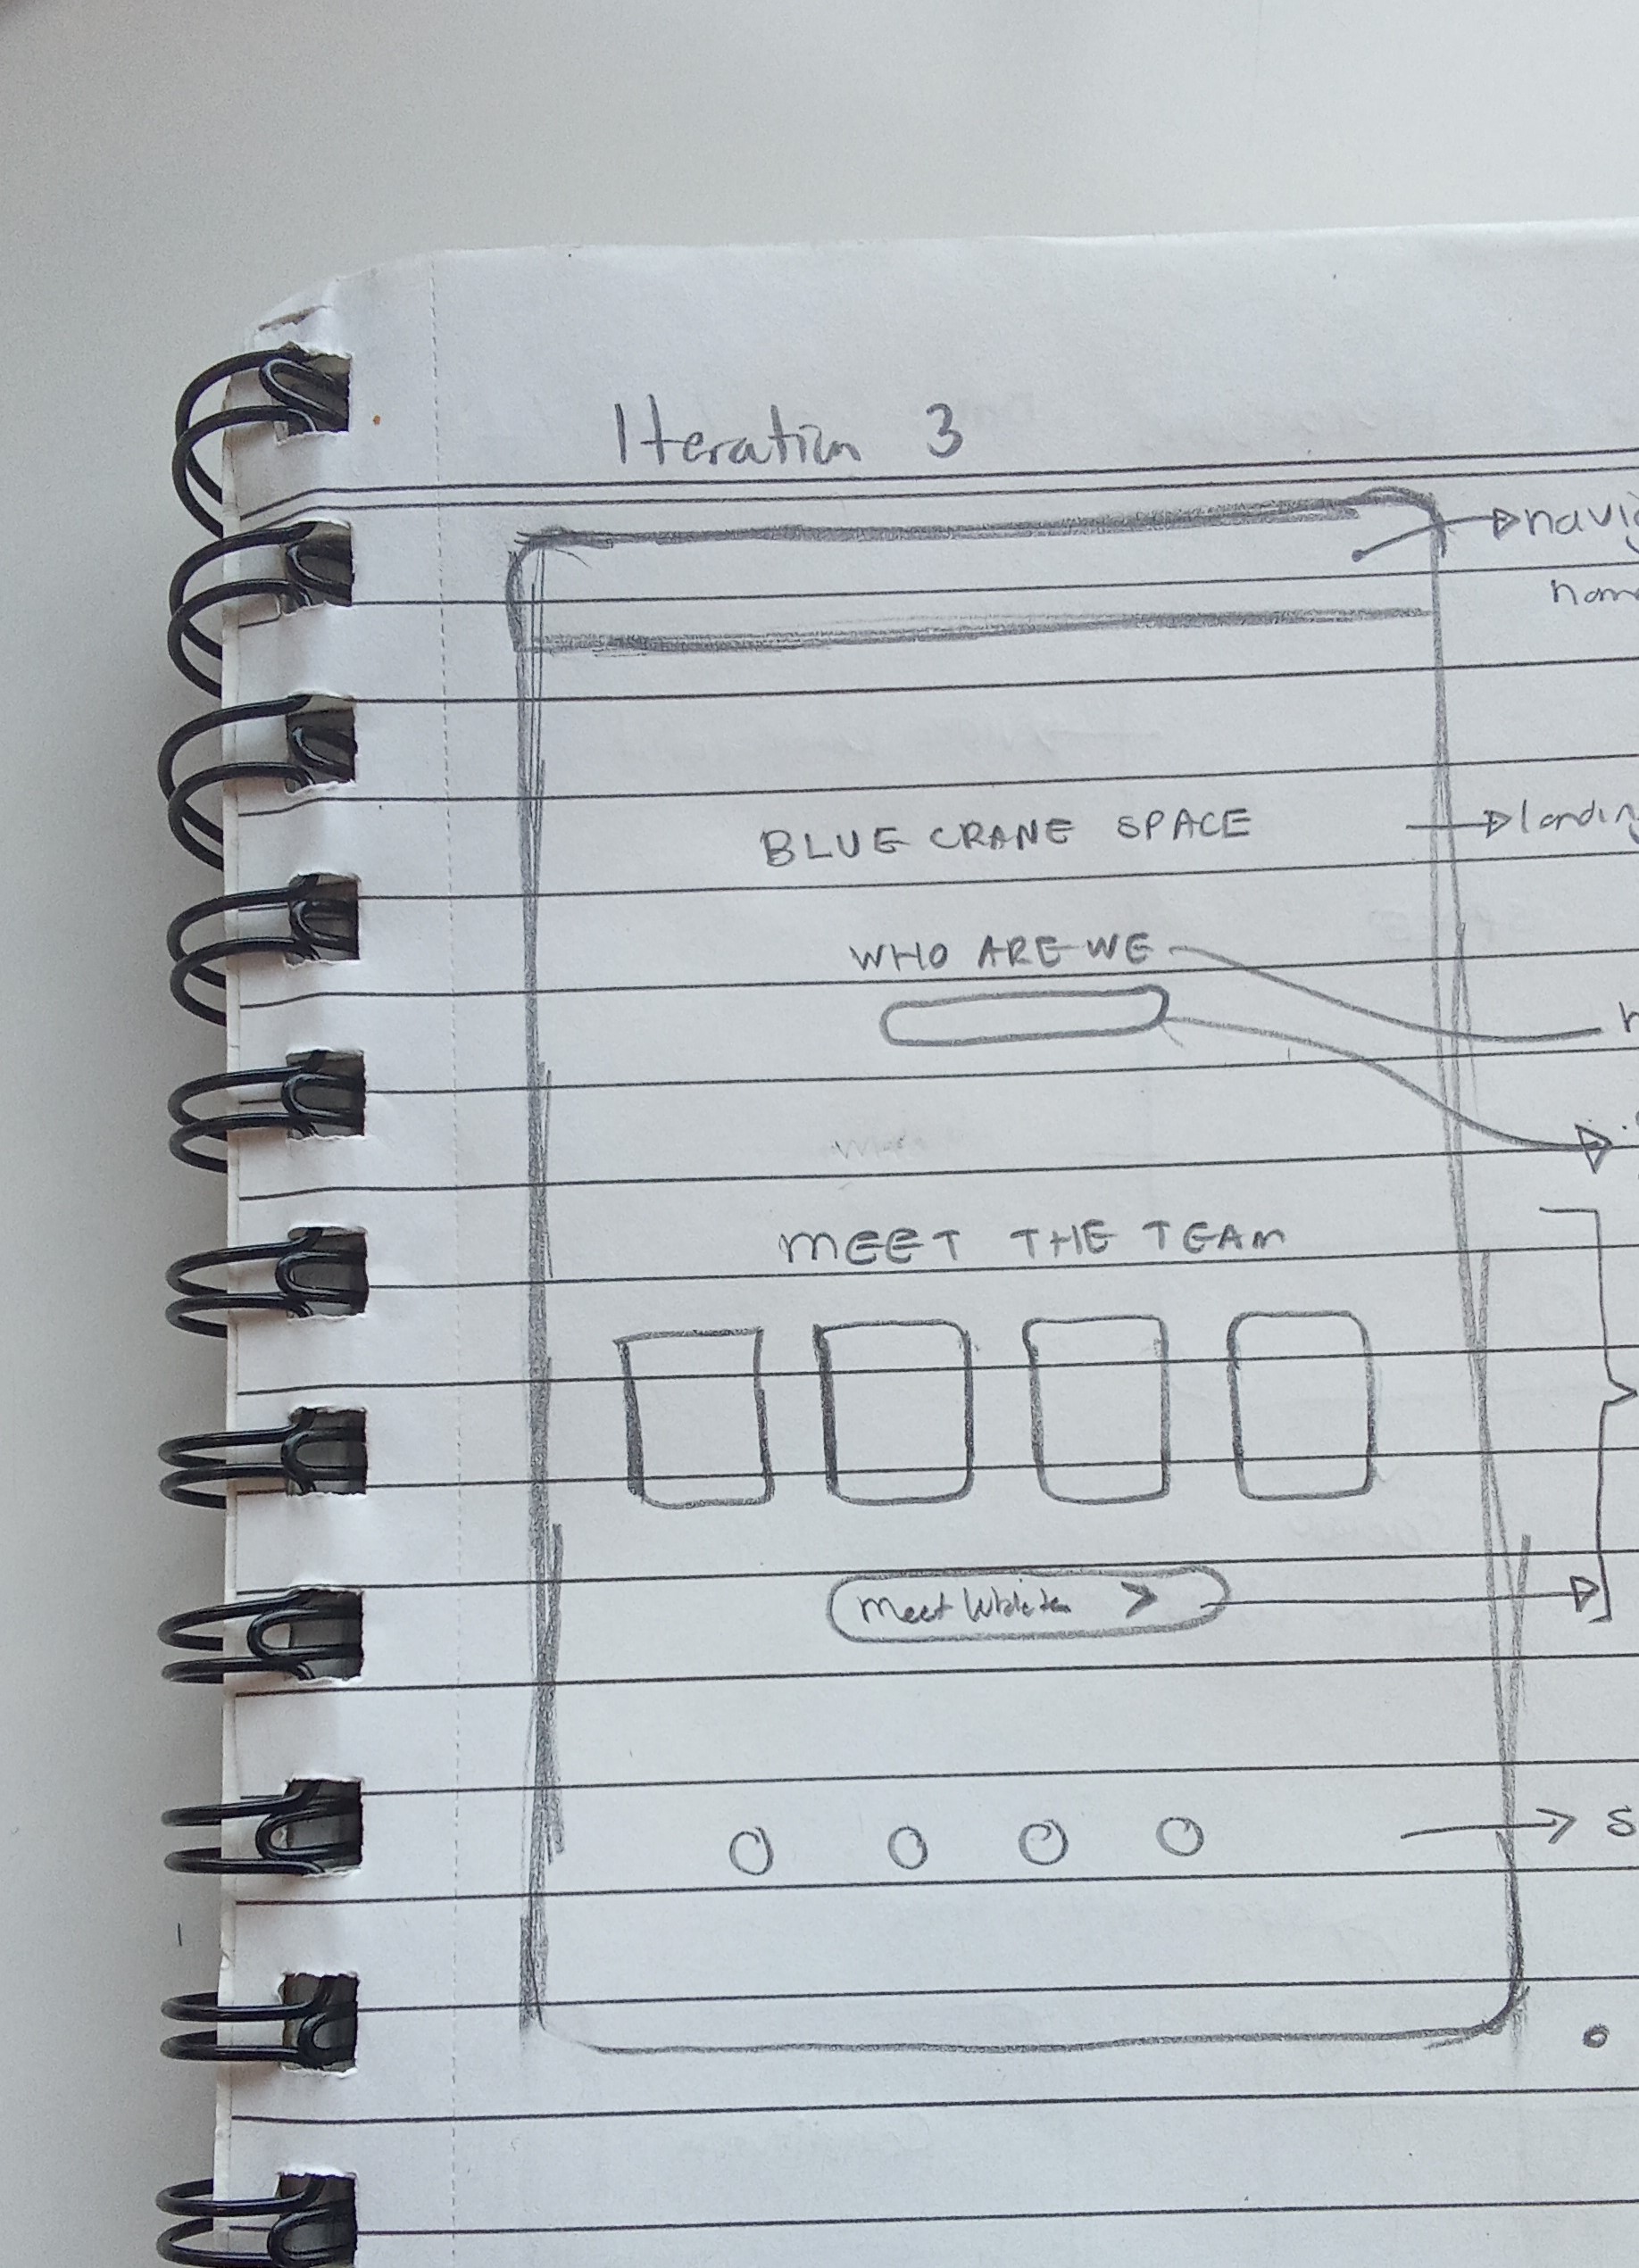 Iteration 3
navig
hom
BLUE CRANE SPACE
landing
WHO ARE WE
h
MEET THE TEAM
Meet Whole >
s